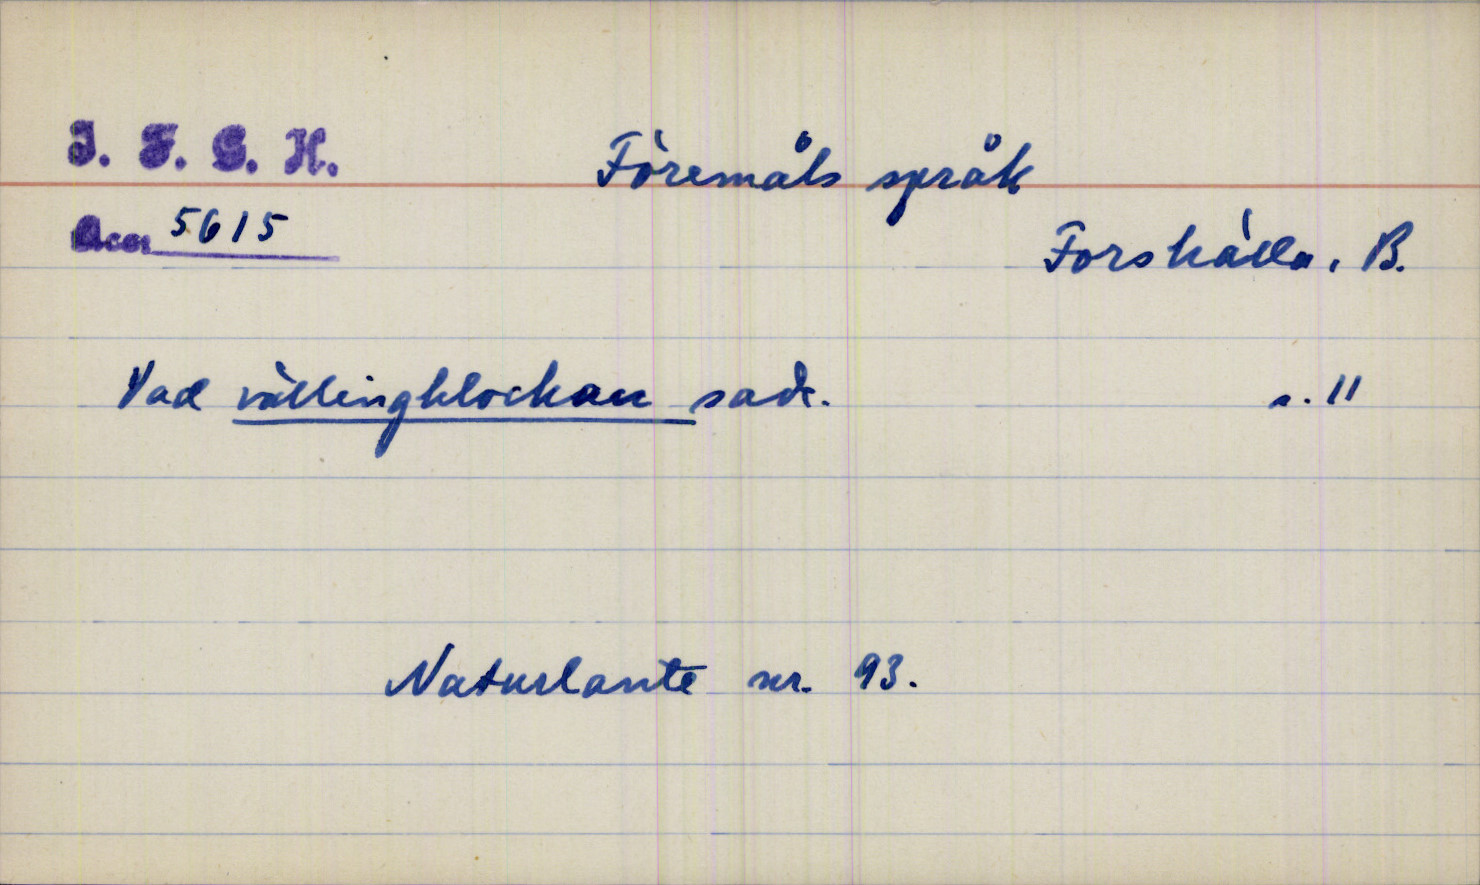 I. F. G. H.
Föremåls språk
Acc. 5615
Forshälla, B.
Vad vällingklockan sade.
s. 11
Naturlante nr. 93.